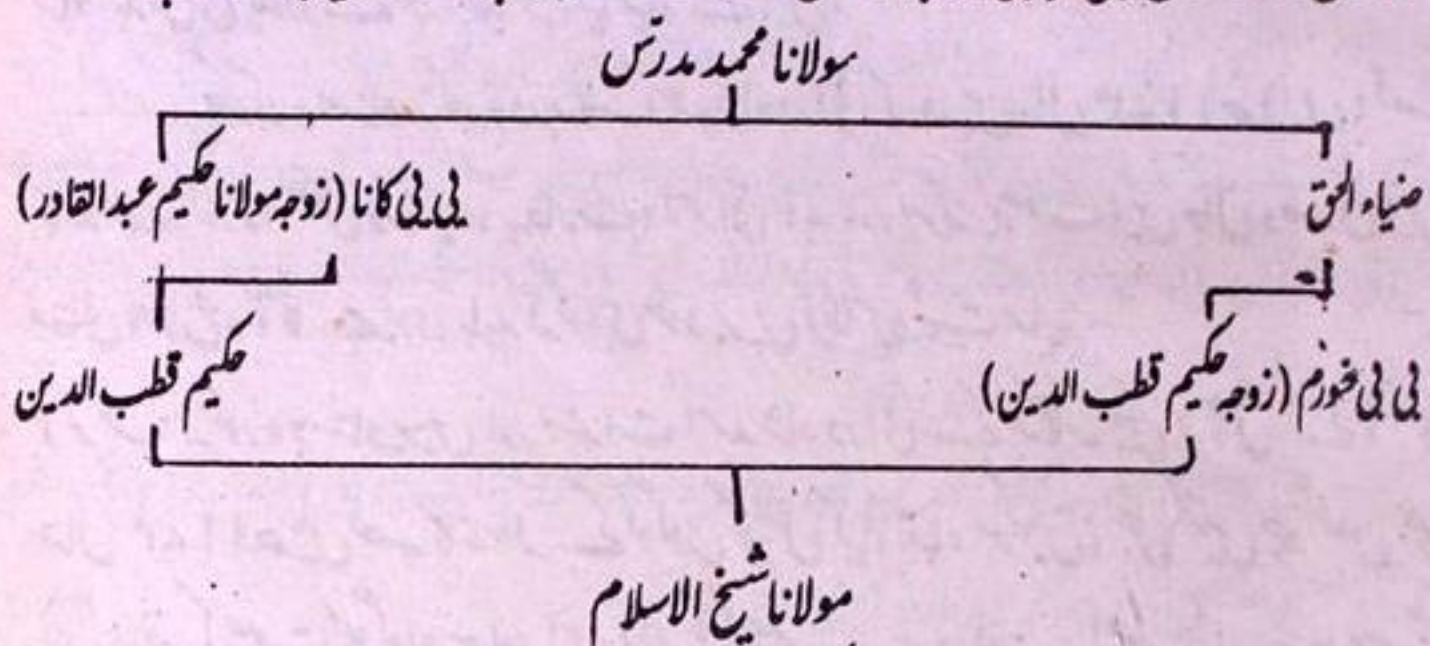 مولانا محمد مدرس
ضیاء الحق
بی بی کانا (زوجہ مولانا حکیم عبدالقادر)
بی بی خوزم (زوجہ حکیم قطب الدین)
حکیم قطب الدین
مولانا شیخ الاسلام